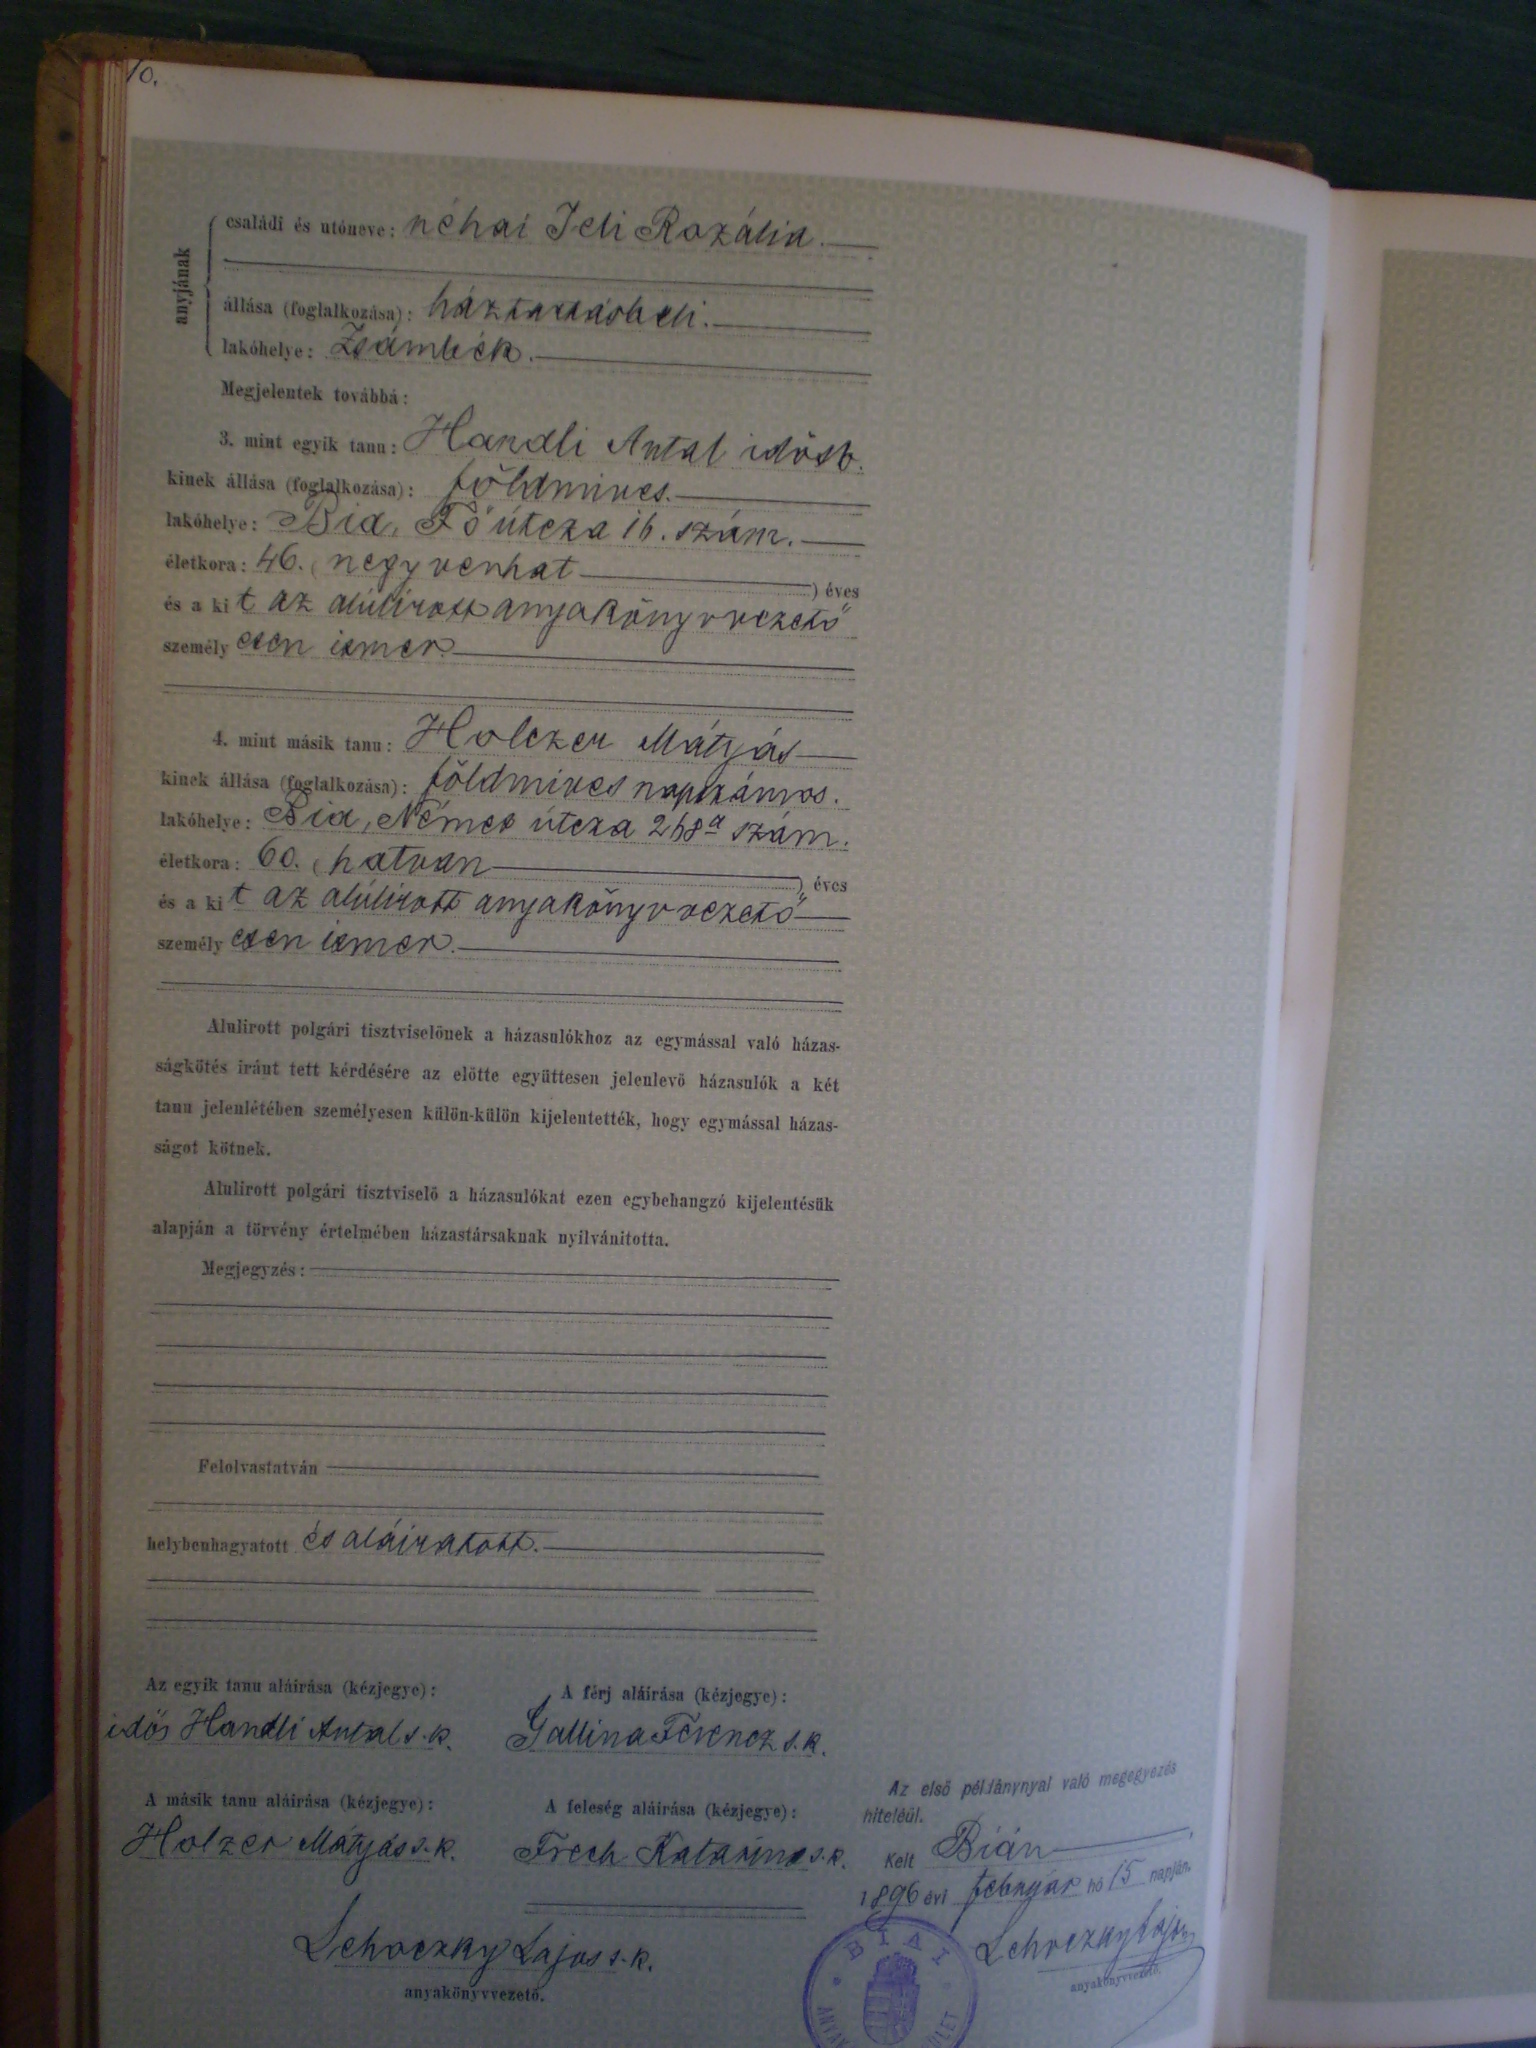 10.
anyjának
családi és utóneve: néhai Jeli Rozália.
állása (foglalkozása): háztartásbeli.
lakóhelye: Zsámbék.
Megjelentek továbbá:
3. mint egyik tanu: Handli Antal idösb.
kinek állása (foglalkozása): földmives.
lakóhelye: Bia, Fő útcza 16. szám.
életkora: 46. (negyvenhat) éves
és a kit az alúlirott anyakönyvvezető
személyesen ismer.
4. mint másik tanu: Holczer Mátyás
kinek állása (foglalkozása): földmives napszámos.
lakóhelye: Bia, Német útcza 268a szám.
életkora: 60. (hatvan) éves
és a kit az alúlirott anyakönyvvezető
személyesen ismer.
Alulirott polgári tisztviselönek a házasulókhoz az egymással való házas-
ságkötés iránt tett kérdésére az elötte együttesen jelenlevö házasulók a két
tanu jelenlétében személyesen külön-külön kijelentették, hogy egymással házas-
ságot kötnek.
Alulirott polgári tisztviselö a házasulókat ezen egybehangzó kijelentésük
alapján a törvény értelmében házastársaknak nyilvánitotta.
Megjegyzés:
Felolvastatván
helybenhagyatott és aláiratott.
Az egyik tanu aláirása (kézjegye): A férj aláirása (kézjegye):
idős Handli Antal s. k. Gallina Ferencz s. k.
A másik tanu aláirása (kézjegye): A feleség aláirása (kézjegye):
Holzer Mátyás s. k. Frech Katarina s. k.
Lehoczky Lajos s. k.
anyakönyvvezető.
Az első példánynyal való megegyezés
hiteléűl.
Kelt Bián
1896 évi február hó 15 napján.
Lehoczky Lajos
anyakönyvvezető.
BIAI